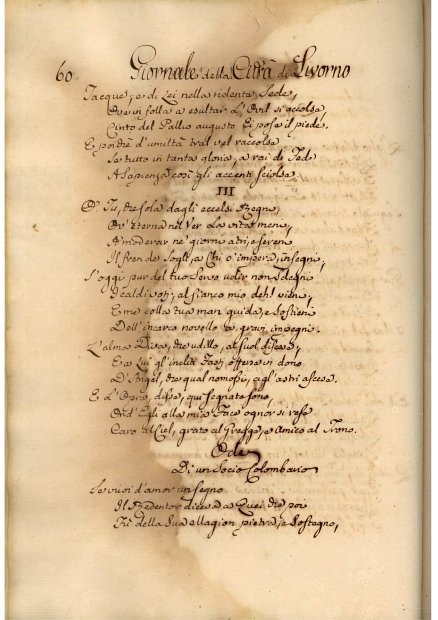 60 Giornale della Città di Livorno
Tacque; e di Lei nella ridente Sede,
Ove in folla a esultar l'Ovil s'accolse,
Cinto del Pallio augusto Ei pose il piede.
E poichè d'umiltà tra'l vel raccolse
Se tutto in tanta gloria, a rai di Fede
A Sapienza così gli accenti sciolse.
III
O Tu, che sola dagli eccelsi Regni,
Ov' eterna nel Ver La vita meni,
A moderar ne' giorni atri, e sereni
Il fren de' Sogli, a Chi v'impera, insegni,
S'oggi pur del tuo Servo udir non sdegni
I caldi voti, al fianco mio deh! vieni,
E me colla tua man guida, e sostieni
Dell' incarco novello a' gravi impegni.
L'alma Diva, che udillo, al suol discese,
E a Lui gl' incliti Fasti offerse in dono
D'Angel, che qual nomossi, agl'astri ascese.
E l'Orme, disse, qui segnate sono,
Ond' Egli alla mia Face ognor si rese
Caro al Ciel, grato al Gregge, e Amico al Trono.
Ode
Di un Socio Colombario
Se vuoi d'amor un segno
Il Redentor diceva a Quei che poi
Fù della Sua Magion pietra, e Sostegno,